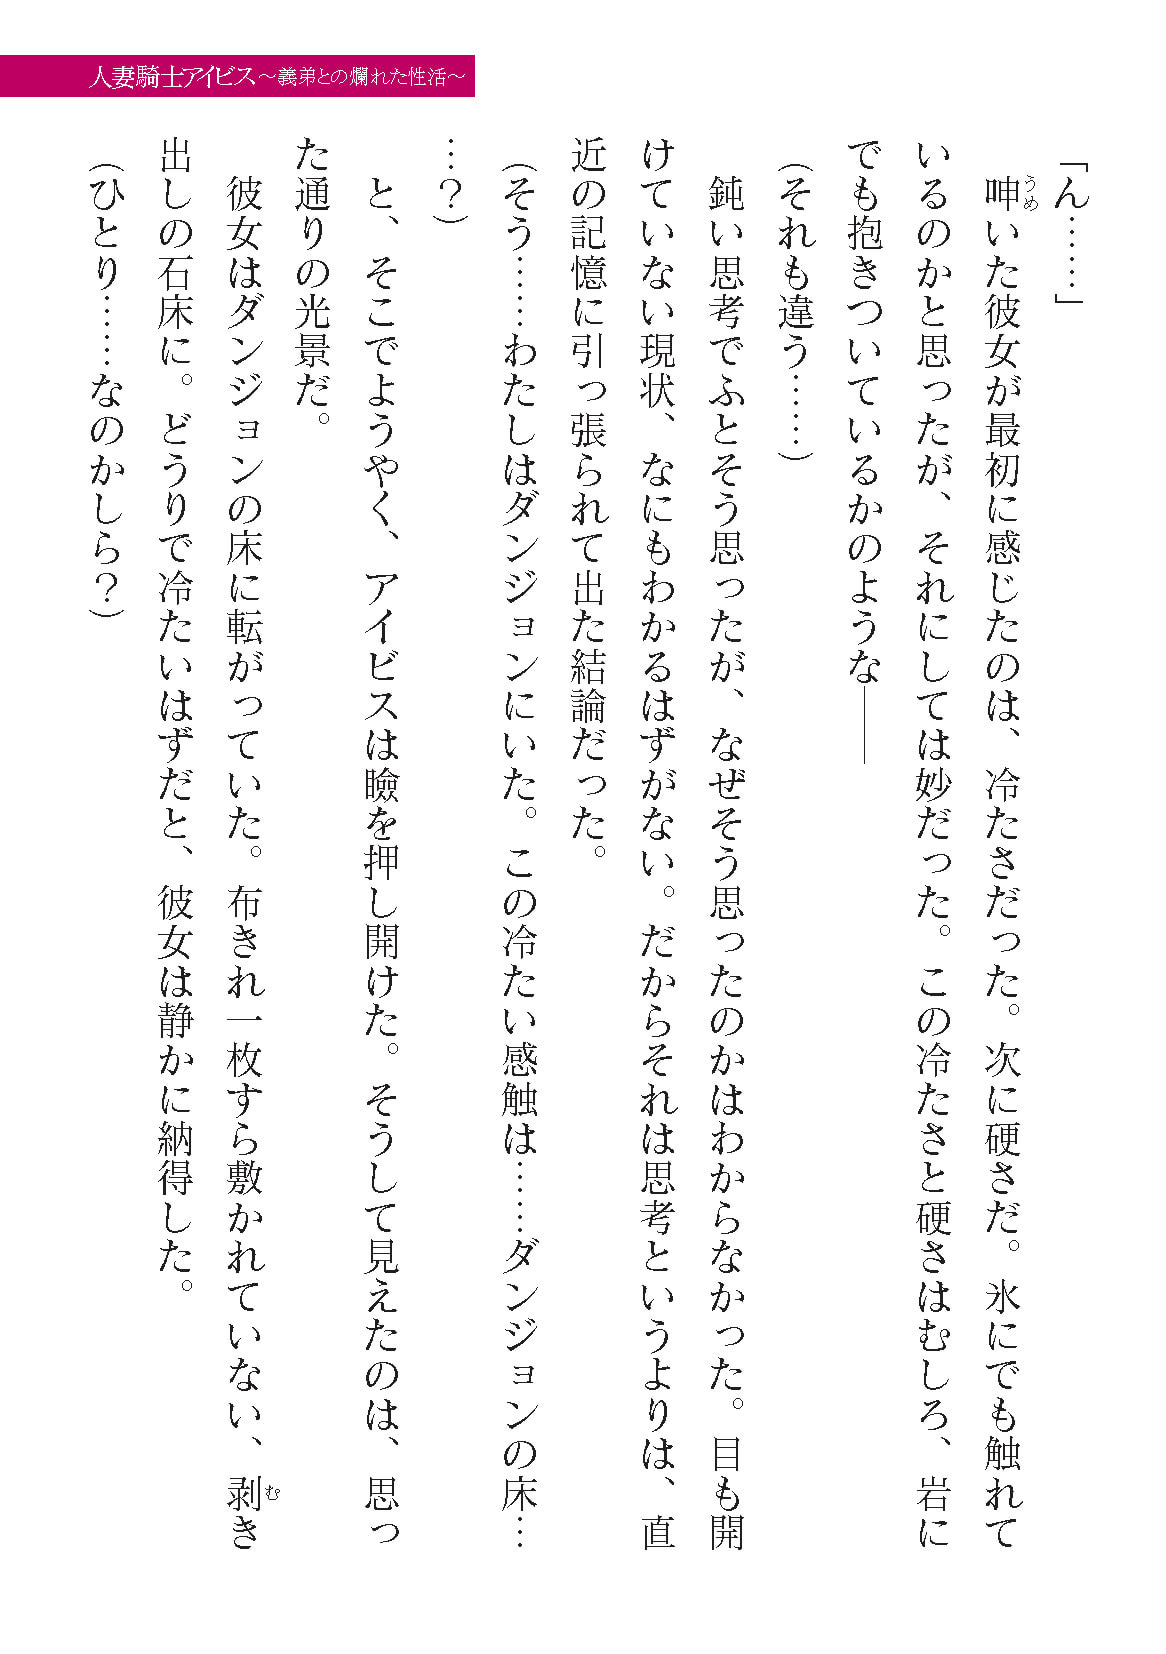 人妻騎士アイビス～義弟との爛れた性活～
「ん……」
呻いた彼女が最初に感じたのは、冷たさだった。次に硬さだ。氷にでも触れて
うめ
いるのかと思ったが、それにしては妙だった。この冷たさと硬さはむしろ、岩に
でも抱きついているかのような――
（それも違う……）
鈍い思考でふとそう思ったが、なぜそう思ったのかはわからなかった。目も開
けていない現状、なにもわかるはずがない。だからそれは思考というよりは、直
近の記憶に引っ張られて出た結論だった。
（そう……わたしはダンジョンにいた。この冷たい感触は……ダンジョンの床…
…？）
と、そこでようやく、アイビスは瞼を押し開けた。そうして見えたのは、思っ
た通りの光景だ。
彼女はダンジョンの床に転がっていた。布きれ一枚すら敷かれていない、剥き
む
出しの石床に。どうりで冷たいはずだと、彼女は静かに納得した。
（ひとり……なのかしら？）